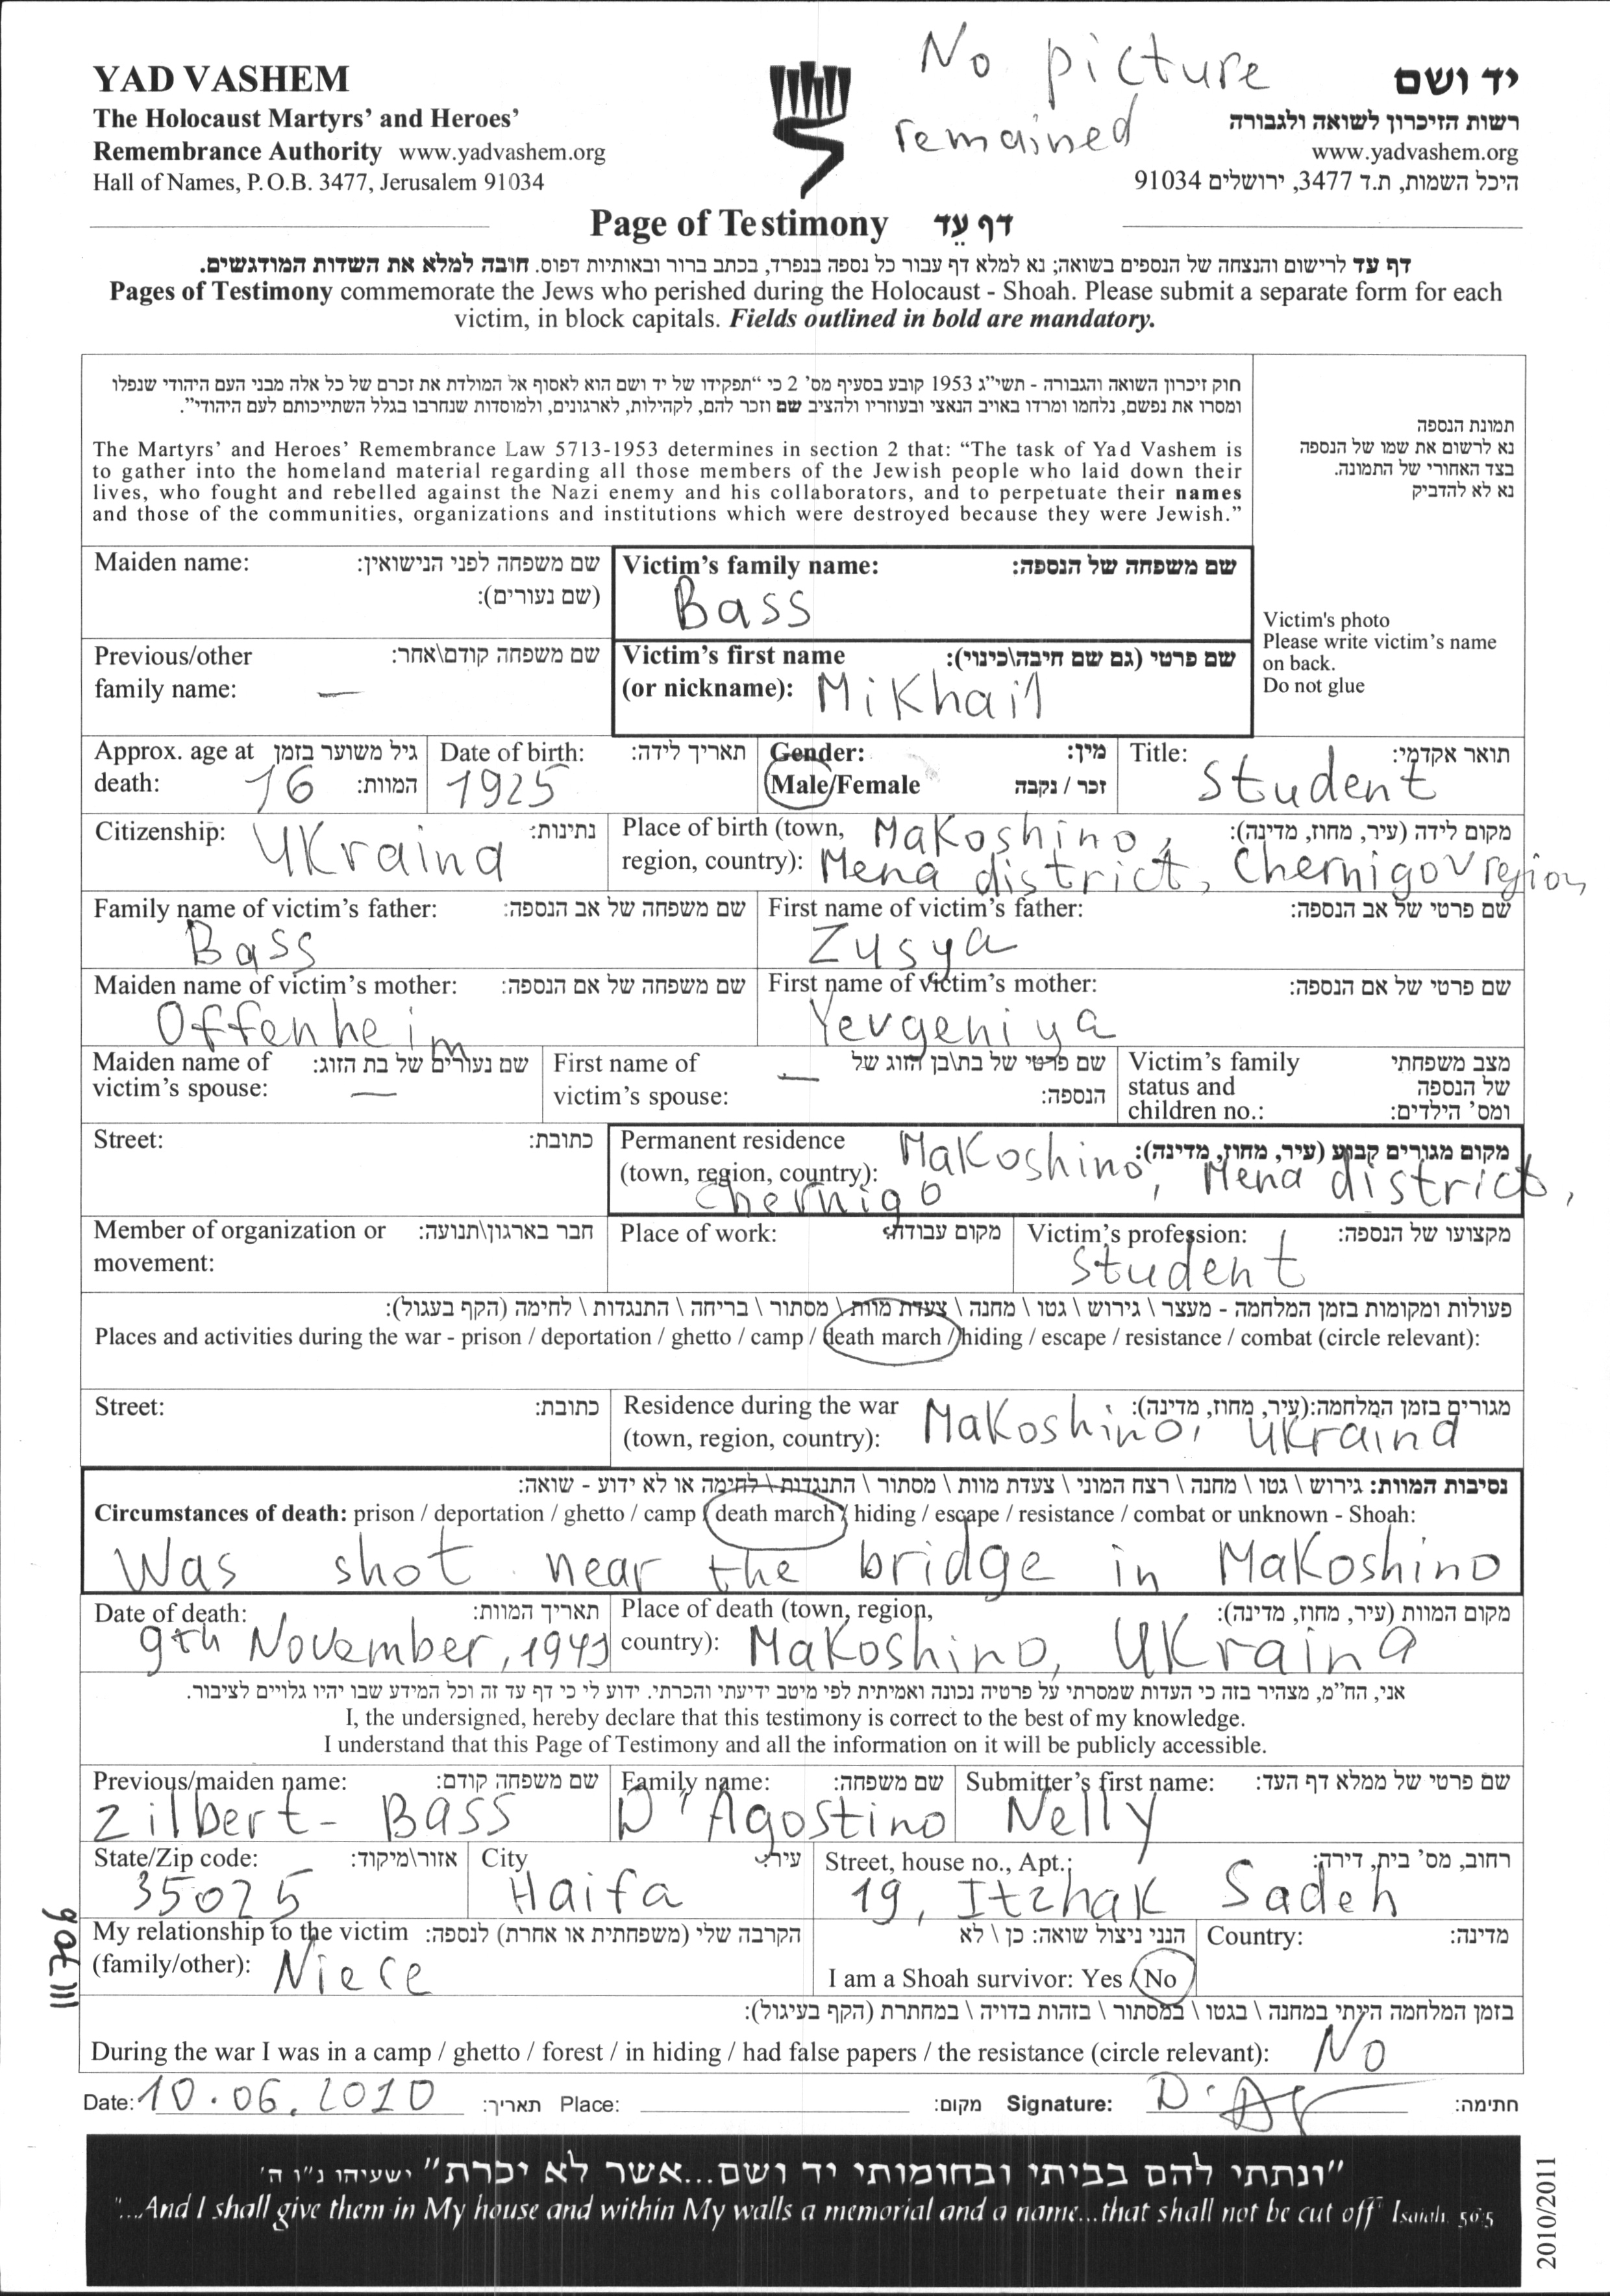 No picture
remained
YAD VASHEM
יד ושם
The Holocaust Martyrs' and Heroes'
Remembrance Authority www.yadvashem.org
Hall of Names, P.O.B. 3477, Jerusalem 91034
רשות הזיכרון לשואה ולגבורה
www.yadvashem.org
היכל השמות, ת.ד 3477, ירושלים 91034
Page of Testimony דף עֵד
דף עד לרישום והנצחה של הנספים בשואה; נא למלא דף עבור כל נספה בנפרד, בכתב ברור ובאותיות דפוס. חובה למלא את השדות המודגשים.
Pages of Testimony commemorate the Jews who perished during the Holocaust - Shoah. Please submit a separate form for each
victim, in block capitals. Fields outlined in bold are mandatory.
חוק זיכרון השואה והגבורה - תשי"ג 1953 קובע בסעיף מס' 2 כי "תפקידו של יד ושם הוא לאסוף אל המולדת את זכרם של כל אלה מבני העם היהודי שנפלו
ומסרו את נפשם, נלחמו ומרדו באויב הנאצי ובעוזריו ולהציב שם וזכר להם, לקהילות, לארגונים, ולמוסדות שנחרבו בגלל השתייכותם לעם היהודי".
The Martyrs' and Heroes' Remembrance Law 5713-1953 determines in section 2 that: "The task of Yad Vashem is
to gather into the homeland material regarding all those members of the Jewish people who laid down their
lives, who fought and rebelled against the Nazi enemy and his collaborators, and to perpetuate their names
and those of the communities, organizations and institutions which were destroyed because they were Jewish."
תמונת הנספה
נא לרשום את שמו של הנספה
בצד האחורי של התמונה.
נא לא להדביק
Victim's photo
Please write victim's name
on back.
Do not glue
Maiden name: שם משפחה לפני הנישואין:
(שם נעורים):
Victim's family name: שם משפחה של הנספה:
Bass
Previous/other שם משפחה קודם\אחר:
family name: —
Victim's first name שם פרטי (גם שם חיבה\כינוי):
(or nickname): Mikhail
Approx. age at גיל משוער בזמן
death: 16 המוות:
Date of birth: תאריך לידה:
1925
Gender: מין:
Male/Female זכר / נקבה
Title: תואר אקדמי:
Student
Citizenship: Ukraina נתינות:
Place of birth (town, Makoshino, מקום לידה (עיר, מחוז, מדינה):
region, country): Mena district, Chernigov region,
Family name of victim's father: שם משפחה של אב הנספה:
Bass
First name of victim's father: שם פרטי של אב הנספה:
Zusya
Maiden name of victim's mother: שם משפחה של אם הנספה:
Offenheim
First name of victim's mother: שם פרטי של אם הנספה:
Yevgeniya
Maiden name of שם נעורים של בת הזוג:
victim's spouse: —
First name of — שם פרטי של בת\בן הזוג של
victim's spouse: הנספה:
Victim's family מצב משפחתי
status and של הנספה
children no.: ומס' הילדים:
Street: כתובת:
Permanent residence Makoshino, מקום מגורים קבוע (עיר, מחוז, מדינה):
(town, region, country): Mena district,
Chernigo
Member of organization or חבר בארגון\תנועה:
movement:
Place of work: מקום עבודה:
Victim's profession: מקצועו של הנספה:
Student
פעולות ומקומות בזמן המלחמה - מעצר \ גירוש \ גטו \ מחנה \ צעדת מוות \ מסתור \ בריחה \ התנגדות \ לחימה (הקף בעגול):
Places and activities during the war - prison / deportation / ghetto / camp / death march / hiding / escape / resistance / combat (circle relevant):
Street: כתובת:
Residence during the war מגורים בזמן המלחמה:(עיר, מחוז, מדינה):
(town, region, country): Makoshino, Ukraina
נסיבות המוות: גירוש \ גטו \ מחנה \ רצח המוני \ צעדת מוות \ מסתור \ התנגדות \ לחימה או לא ידוע - שואה:
Circumstances of death: prison / deportation / ghetto / camp / death march / hiding / escape / resistance / combat or unknown - Shoah:
Was shot near the bridge in Makoshino
Date of death: תאריך המוות:
9th November, 1941
Place of death (town, region, מקום המוות (עיר, מחוז, מדינה):
country): Makoshino, Ukraina
אני, הח"מ, מצהיר בזה כי העדות שמסרתי על פרטיה נכונה ואמיתית לפי מיטב ידיעתי והכרתי. ידוע לי כי דף עד זה וכל המידע שבו יהיו גלויים לציבור.
I, the undersigned, hereby declare that this testimony is correct to the best of my knowledge.
I understand that this Page of Testimony and all the information on it will be publicly accessible.
Previous/maiden name: שם משפחה קודם:
Zilbert-Bass
Family name: שם משפחה:
D'Agostino
Submitter's first name: שם פרטי של ממלא דף העד:
Nelly
State/Zip code: אזור\מיקוד:
35025
City עיר:
Haifa
Street, house no., Apt.: רחוב, מס' בית, דירה:
19, Itzhak Sadeh
My relationship to the victim הקרבה שלי (משפחתית או אחרת) לנספה:
(family/other): Niece
הנני ניצול שואה: כן \ לא
I am a Shoah survivor: Yes / No
Country: מדינה:
בזמן המלחמה הייתי במחנה \ בגטו \ במסתור \ בזהות בדויה \ במחתרת (הקף בעיגול):
During the war I was in a camp / ghetto / forest / in hiding / had false papers / the resistance (circle relevant): No
Date: 10.06.2010 תאריך: Place: מקום: Signature: D'Ag חתימה:
"ונתתי להם בביתי ובחומותי יד ושם...אשר לא יכרת" ישעיהו נ"ו ה'
"...And I shall give them in My house and within My walls a memorial and a name...that shall not be cut off" Isaiah, 56:5
2010/2011